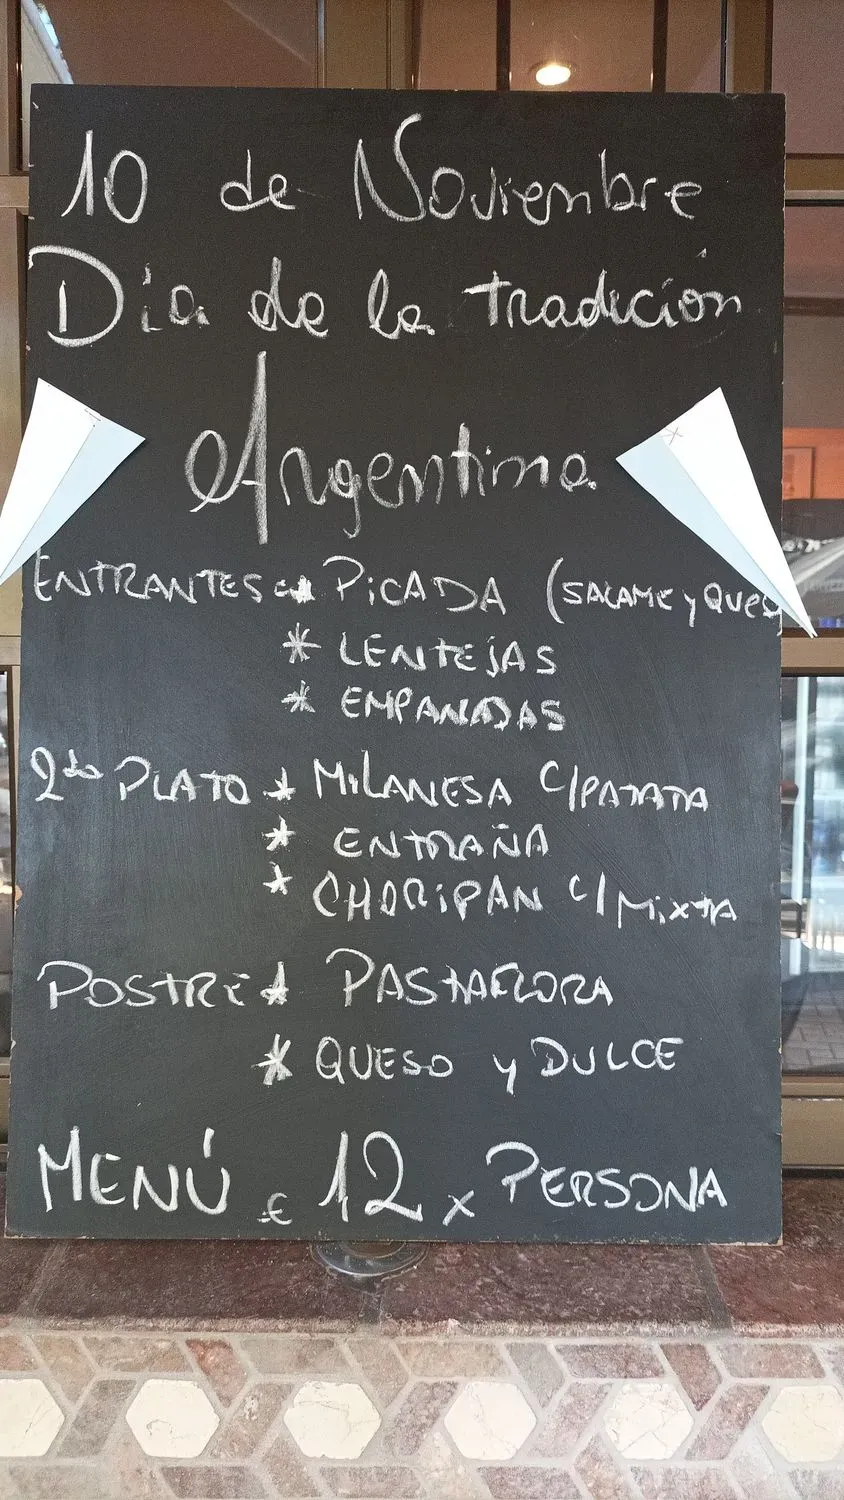 10 de Noviembre
Día de la tradición
Argentina
ENTRANTES * PICADA (SALAME y QUESO
* LENTEJAS
* EMPANADAS
2do PLATO * MILANESA C/PATATA
* ENTRAÑA
* CHORIPAN C/MIXTA
POSTRE * PASTAFLORA
* QUESO y DULCE
MENÚ € 12 x PERSONA